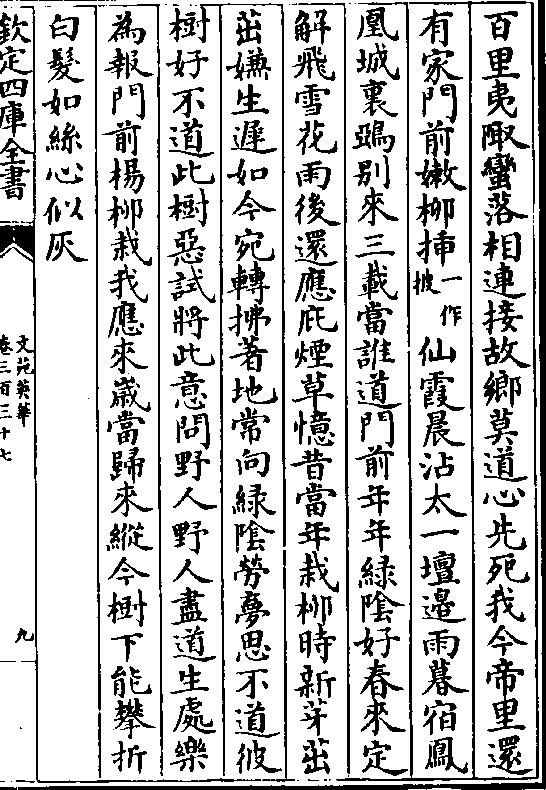 百里夷陬蠻落相連接故鄉莫道心先死我今帝里還
有家門前嫩柳揷一作披仙霞晨沾太一壇邉雨暮宿鳳
凰城裏鵶別來三載當誰道門前年年緑陰好春來定
解飛雪花雨後還應庇煙草憶昔當年栽柳時新芽茁
茁嫌生遲如今宛轉拂著地常向緑陰勞夢思不道彼
樹好不道此樹惡試將此意問野人野人盡道生處樂
為報門前楊柳栽我應來嵗當歸來縱令樹下能攀折
白髮如絲心似灰
欽定四庫全書
文苑英華
卷三百三十七
九